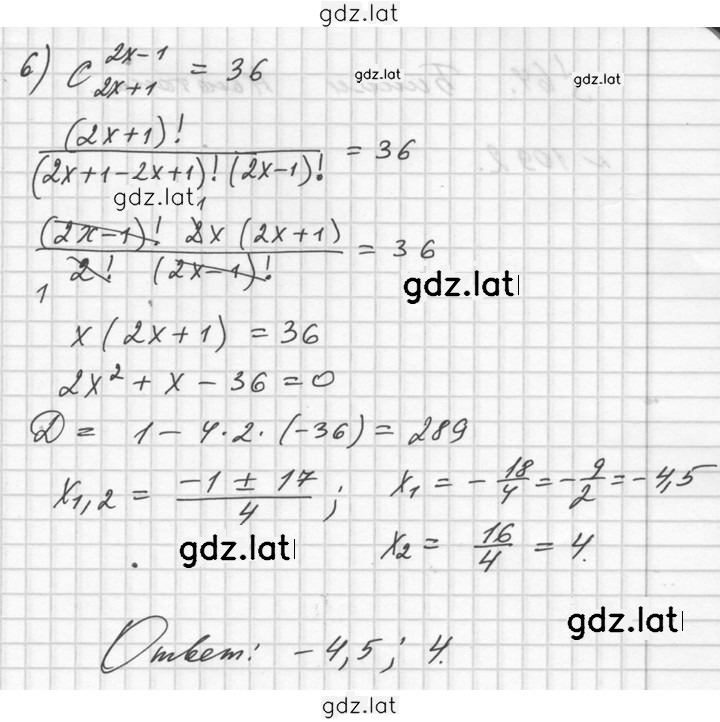 gdz.lat
6) C_{2x+1}^{2x-1} = 36
gdz.lat
gdz.lat
(2x+1)! / (2x+1-2x+1)! (2x-1)! = 36
gdz.lat
1
(2x-1)! 2x (2x+1) / 2! (2x-1)! = 36
1
gdz.lat
x(2x+1) = 36
2x² + x - 36 = 0
D = 1 - 4·2·(-36) = 289
x_{1,2} = (-1 ± 17)/4 ; x_1 = -18/4 = -9/2 = -4,5
gdz.lat
x_2 = 16/4 = 4.
gdz.lat
Ответ: -4,5; 4.
gdz.lat